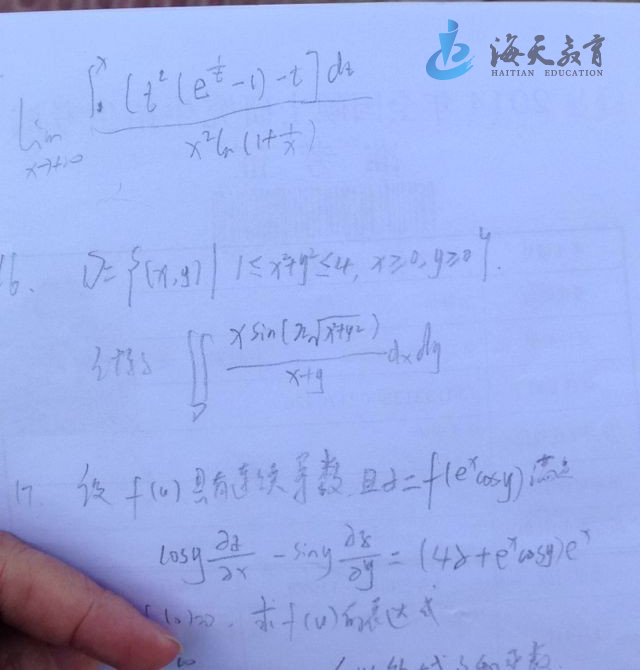 海天教育
HAITIAN EDUCATION
lim x→+∞ ∫₁ˣ [t²(e^{1/t}-1)-t]dt / x²ln(1+1/x)
16. D={(x,y)| 1≤x²+y²≤4, x≥0, y≥0}.
计算 ∬_D x sin(π√(x²+y²)) / (x+y) dxdy
17. 设 f(u) 具有连续导数,且z=f(eˣcosy)满足
cosy ∂z/∂x - siny ∂z/∂y = (4z+eˣcosy)eˣ
f(0)=0, 求 f(u)的表达式